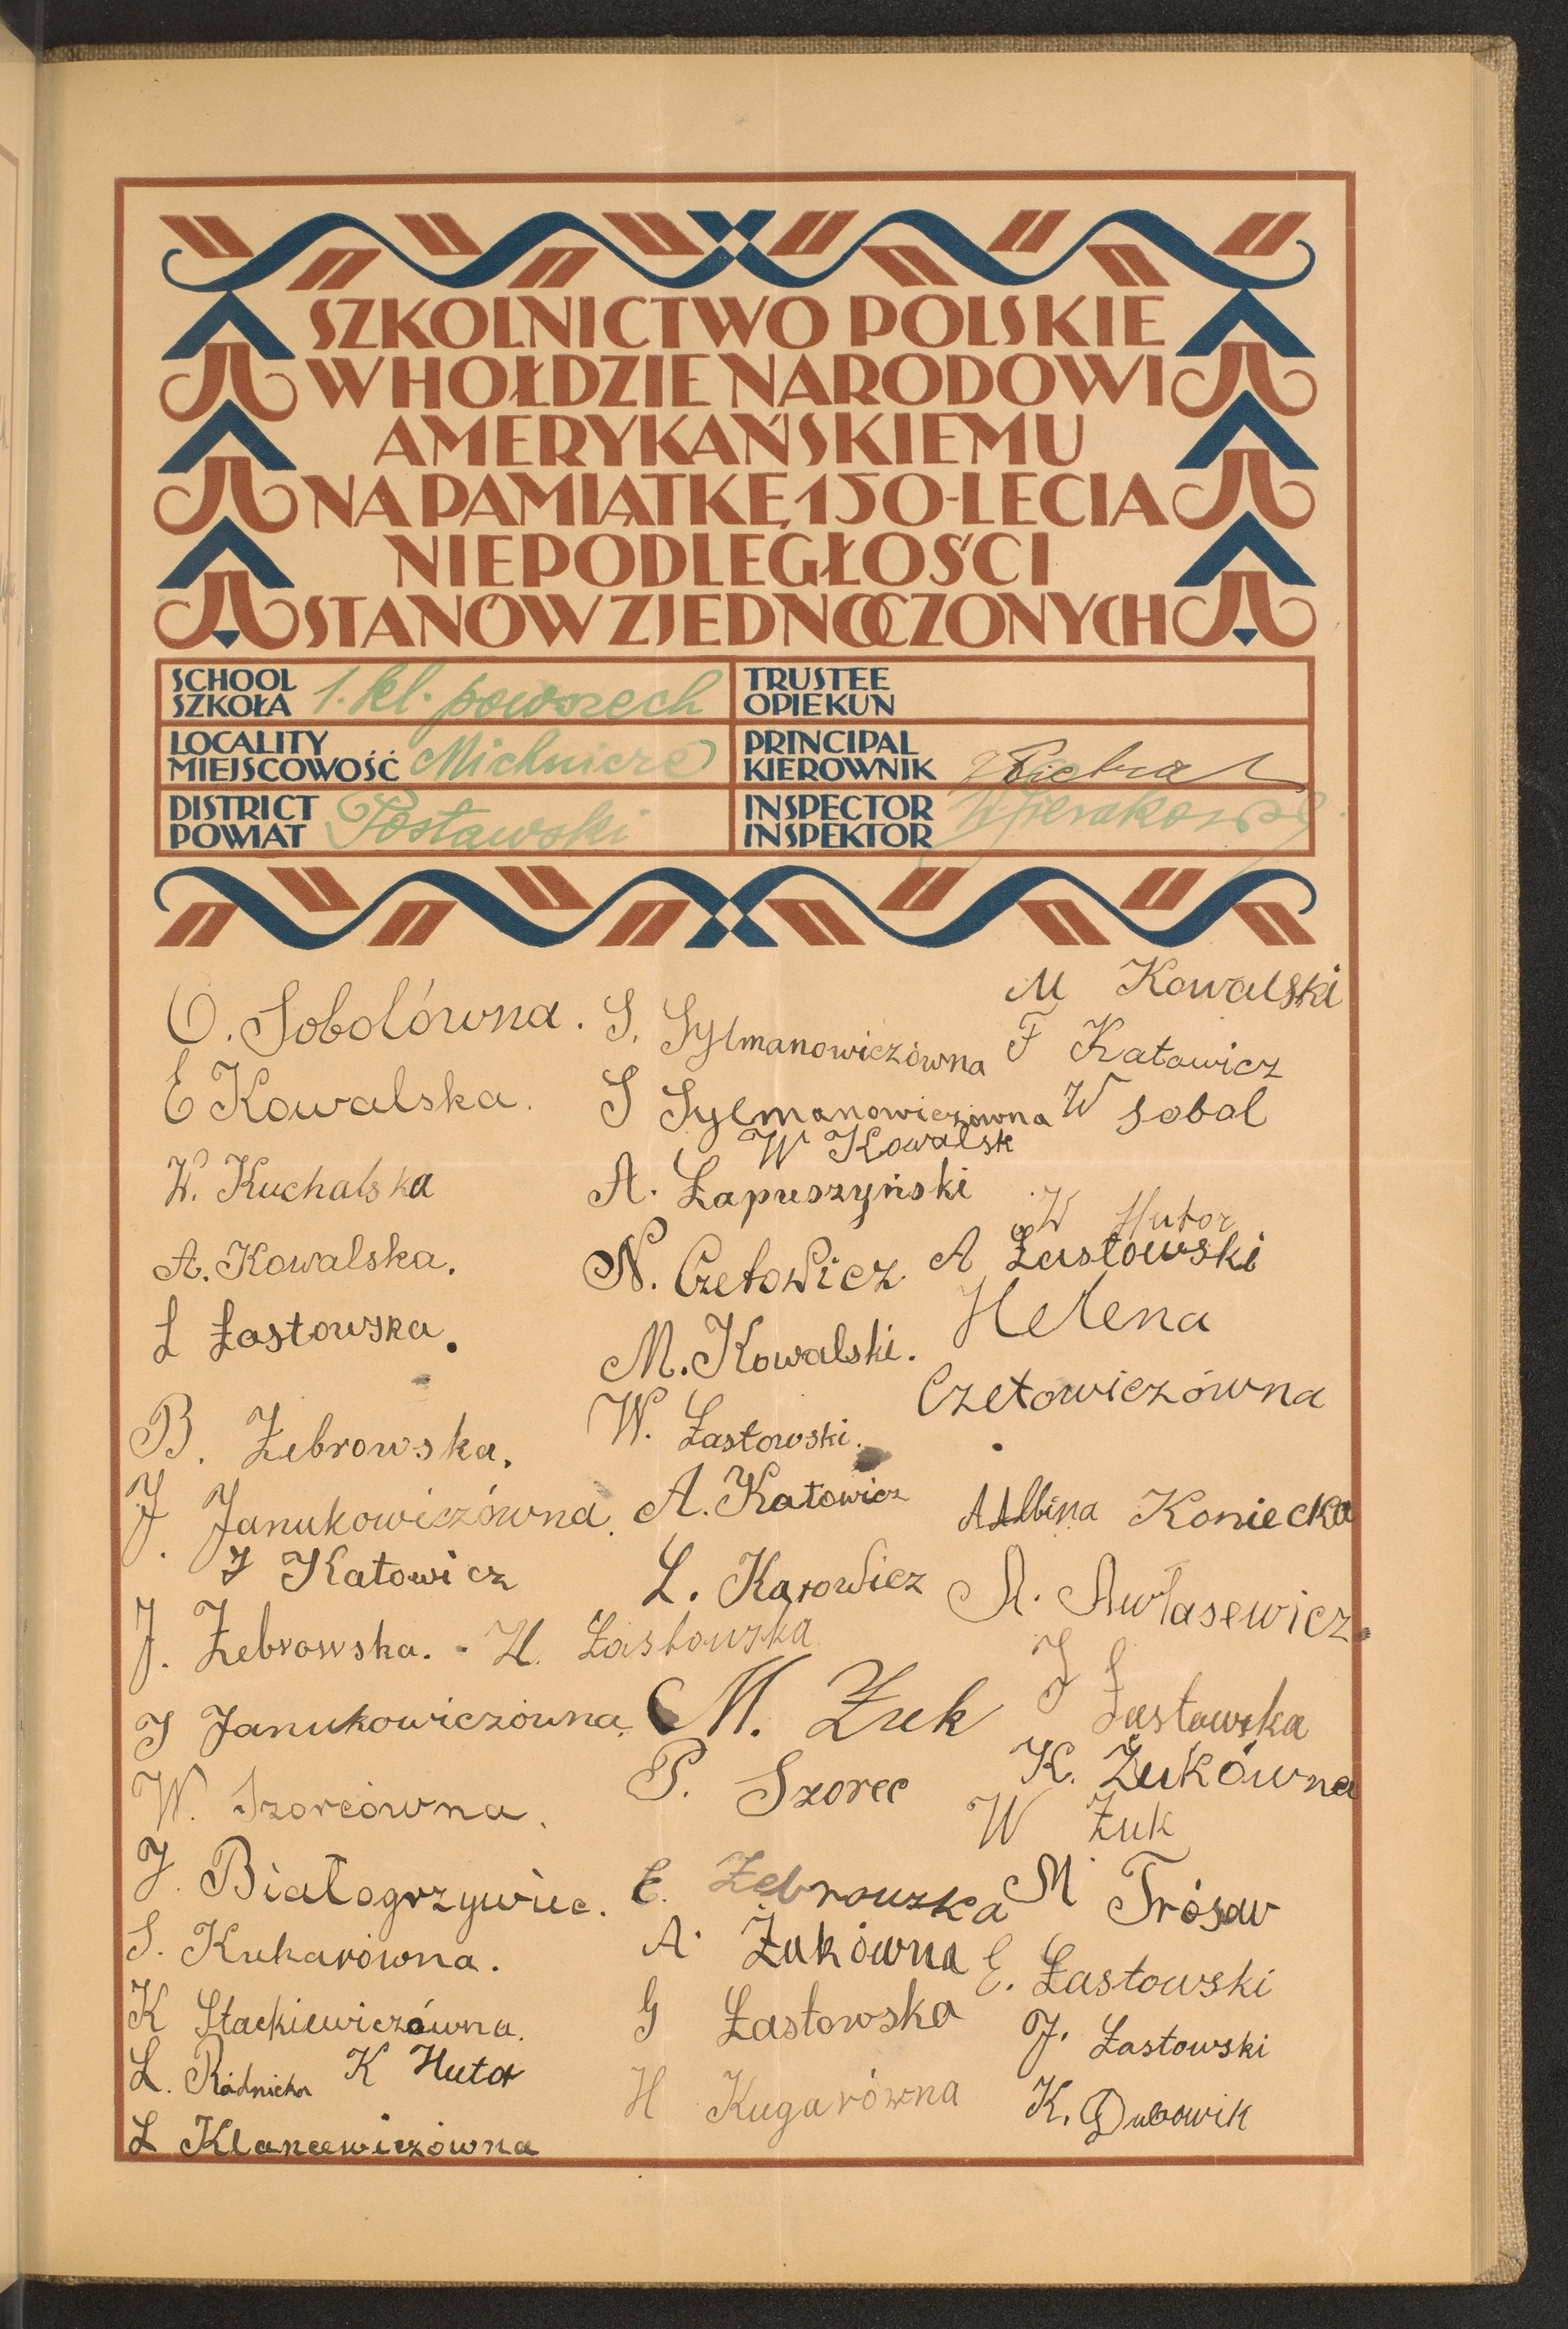 SZKOLNICTWO POLSKIE
W HOŁDZIE NARODOWI
AMERYKAŃSKIEMU
NA PAMIĄTKĘ 150-LECIA
NIEPODLEGŁOŚCI
STANÓW ZJEDNOCZONYCH
SCHOOL
SZKOŁA 1. kl. powszech
TRUSTEE
OPIEKUN
LOCALITY
MIEJSCOWOŚĆ Michnicze
PRINCIPAL
KIEROWNIK
DISTRICT
POWIAT Postawski
INSPECTOR
INSPEKTOR
O. Sobolówna.
E Kowalska.
W. Kuchalska
A. Kowalska.
L Łastowska.
B. Żebrowska.
J. Janukowiczówna.
J Katowicz
J. Żebrowska. - H. Łastowska
J Janukowiczówna.
W. Szorcówna.
J. Białogrzywiec.
S. Kukarówna.
K Stackiewiczówna.
L. Rodnicka K Hutor
L Klancewiczówna
S. Sylmanowiczówna
S Sylmanowiczówna
W Kowalsk
A. Łapuszyński
N. Czetowicz
M. Kowalski.
W. Łastowski.
A. Katowicz
L. Karowicz
M. Żuk
P. Szorec
E. Żebrouzka
A. Żukówna
G Łastowska
H Kugarówna
M Kowalski
F Katowicz
W sobol
W Hutor
A Łastowski
Helena
Czetowiczówna
Albina Koniecka
A. Awłasewicz.
J Łastowska
K. Żukówna
W Żuk
M
E. Łastowski
J. Łastowski
K. Dubowik